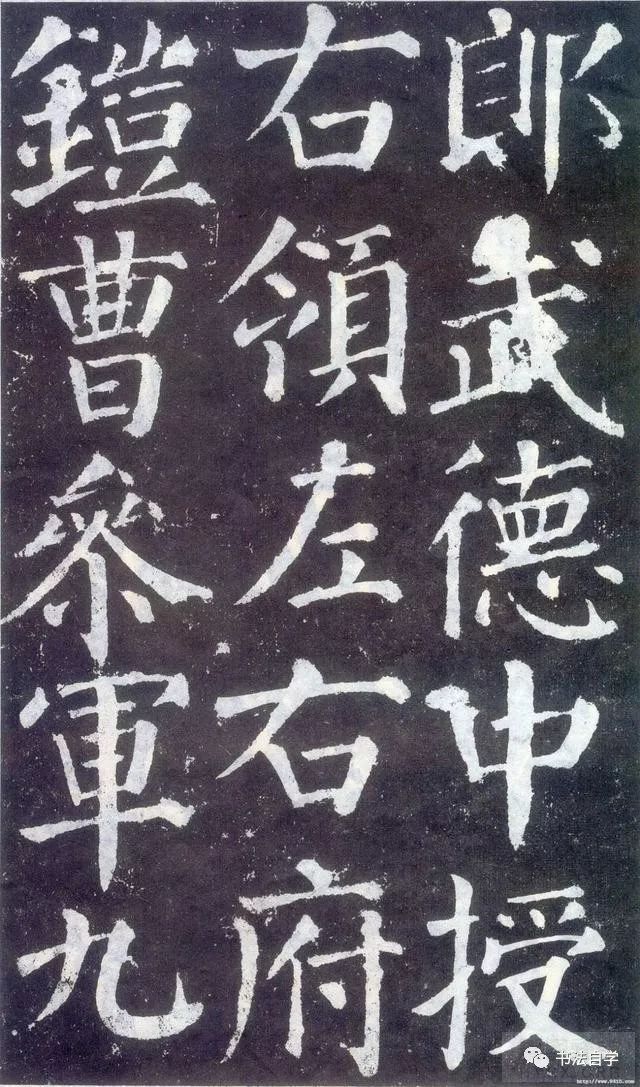 郎武德中授
右領左右府
鎧曹參軍九
书法自学